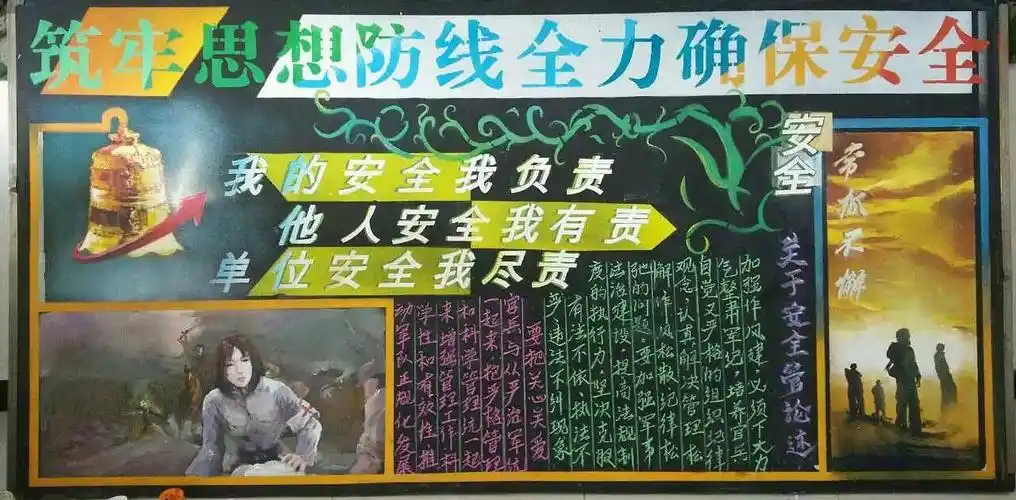 筑牢思想防线全力确保安全
我的安全我负责
他人安全我有责
单位安全我尽责
安全
常抓不懈
关于安全管论述
加强作风建,必须下大力
气整肃军纪,培养官兵
自觉又严格的组织纪律
观念,认真解决管理松
懈作风松散纪律松
弛的问题。要加强军事
法治建设,提高法规制
度的执行力,坚决克服
有法不依、执法不
严、违法不纠现象
要把关心关爱
官兵与从严治军统
一起来,把严格管理
和科学管理统一起
来,增强管理工作科
学性和有效性,推
动军队正规化发展